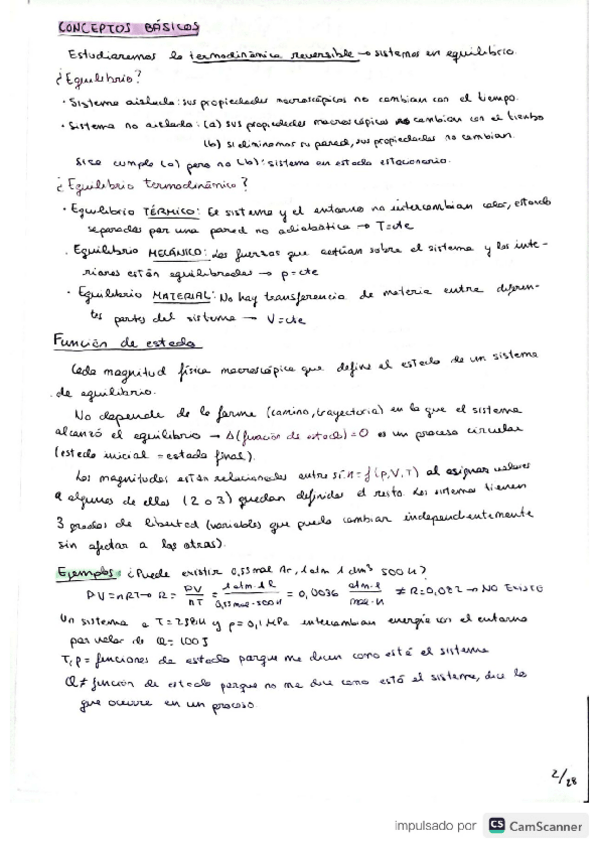 CONCEPTOS BÁSICOS
Estudiaremos la termodinámica reversible → sistemas en equilibrio.
¿Equilibrio?
· Sistema aislado: sus propiedades macroscópicas no cambian con el tiempo.
· Sistema no aislado: (a) sus propiedades macroscópicas no cambian con el tiempo
(b) si eliminamos su pared, sus propiedades no cambian.
Si se cumple (a) pero no (b): sistema en estado estacionario.
¿Equilibrio termodinámico?
· Equilibrio TÉRMICO: El sistema y el entorno no intercambian calor, estando
separados por una pared no adiabática → T=cte
· Equilibrio MECÁNICO: Las fuerzas que actúan sobre el sistema y las inte-
riores están equilibradas → p=cte
· Equilibrio MATERIAL: No hay transferencia de materia entre diferen-
tes partes del sistema → V=cte
Función de estado
Cada magnitud física macroscópica que define el estado de un sistema
de equilibrio.
No depende de la forma (camino, trayectoria) en la que el sistema
alcanzó el equilibrio → Δ(función de estado)=0 es un proceso circular
(estado inicial = estado final).
Las magnitudes están relacionadas entre sí: n=f(p,V,T) al asignar valores
a algunas de ellas (2 o 3) quedan definidas el resto. Los sistemas tienen
3 grados de libertad (variables que puedo cambiar independientemente
sin afectar a las otras).
Ejemplos: ¿Puede existir 0,55 mol Ar, 1 atm 1 dm³ 500 K?
PV=nRT → R = PV/nT = 1 atm·1 l/0,55 mol·500 K = 0,0036 atm·l/mol·K ≠ R=0,082 → NO EXISTE
Un sistema a T=298K y p=0,1 MPa intercambian energía con el entorno
por valor de Q=100J
T, p = funciones de estado porque me dicen como está el sistema
Q ≠ función de estado porque no me dice como está el sistema, dice lo
que ocurre en un proceso.
2/28
impulsado por CS CamScanner